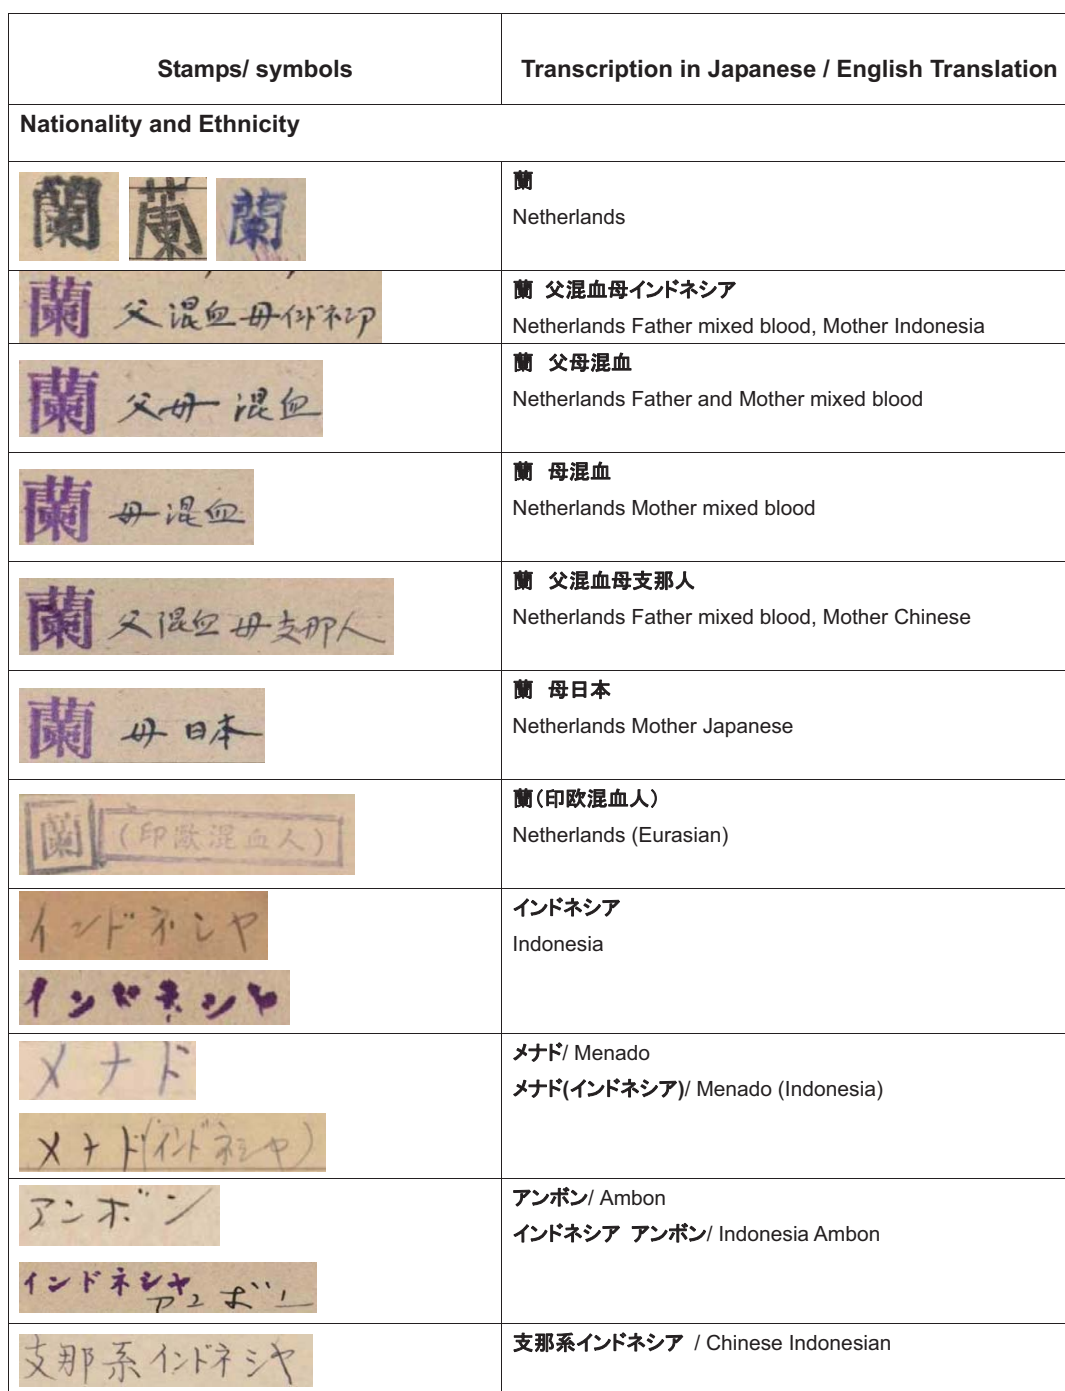 Stamps/ symbols
Transcription in Japanese / English Translation
Nationality and Ethnicity
蘭 蘭 蘭
蘭
Netherlands
蘭 父混血母インドネシア
蘭 父混血母インドネシア
Netherlands Father mixed blood, Mother Indonesia
蘭 父母混血
蘭 父母混血
Netherlands Father and Mother mixed blood
蘭 母混血
蘭 母混血
Netherlands Mother mixed blood
蘭 父混血母支那人
蘭 父混血母支那人
Netherlands Father mixed blood, Mother Chinese
蘭 母日本
蘭 母日本
Netherlands Mother Japanese
蘭 (印歐混血人)
蘭(印欧混血人)
Netherlands (Eurasian)
インドネシヤ
インドネシヤ
インドネシア
Indonesia
メナド
メナド(インドネシヤ)
メナド/ Menado
メナド(インドネシア)/ Menado (Indonesia)
アンボン
インドネシヤ アンボン
アンボン/ Ambon
インドネシア アンボン/ Indonesia Ambon
支那系インドネシヤ
支那系インドネシア / Chinese Indonesian